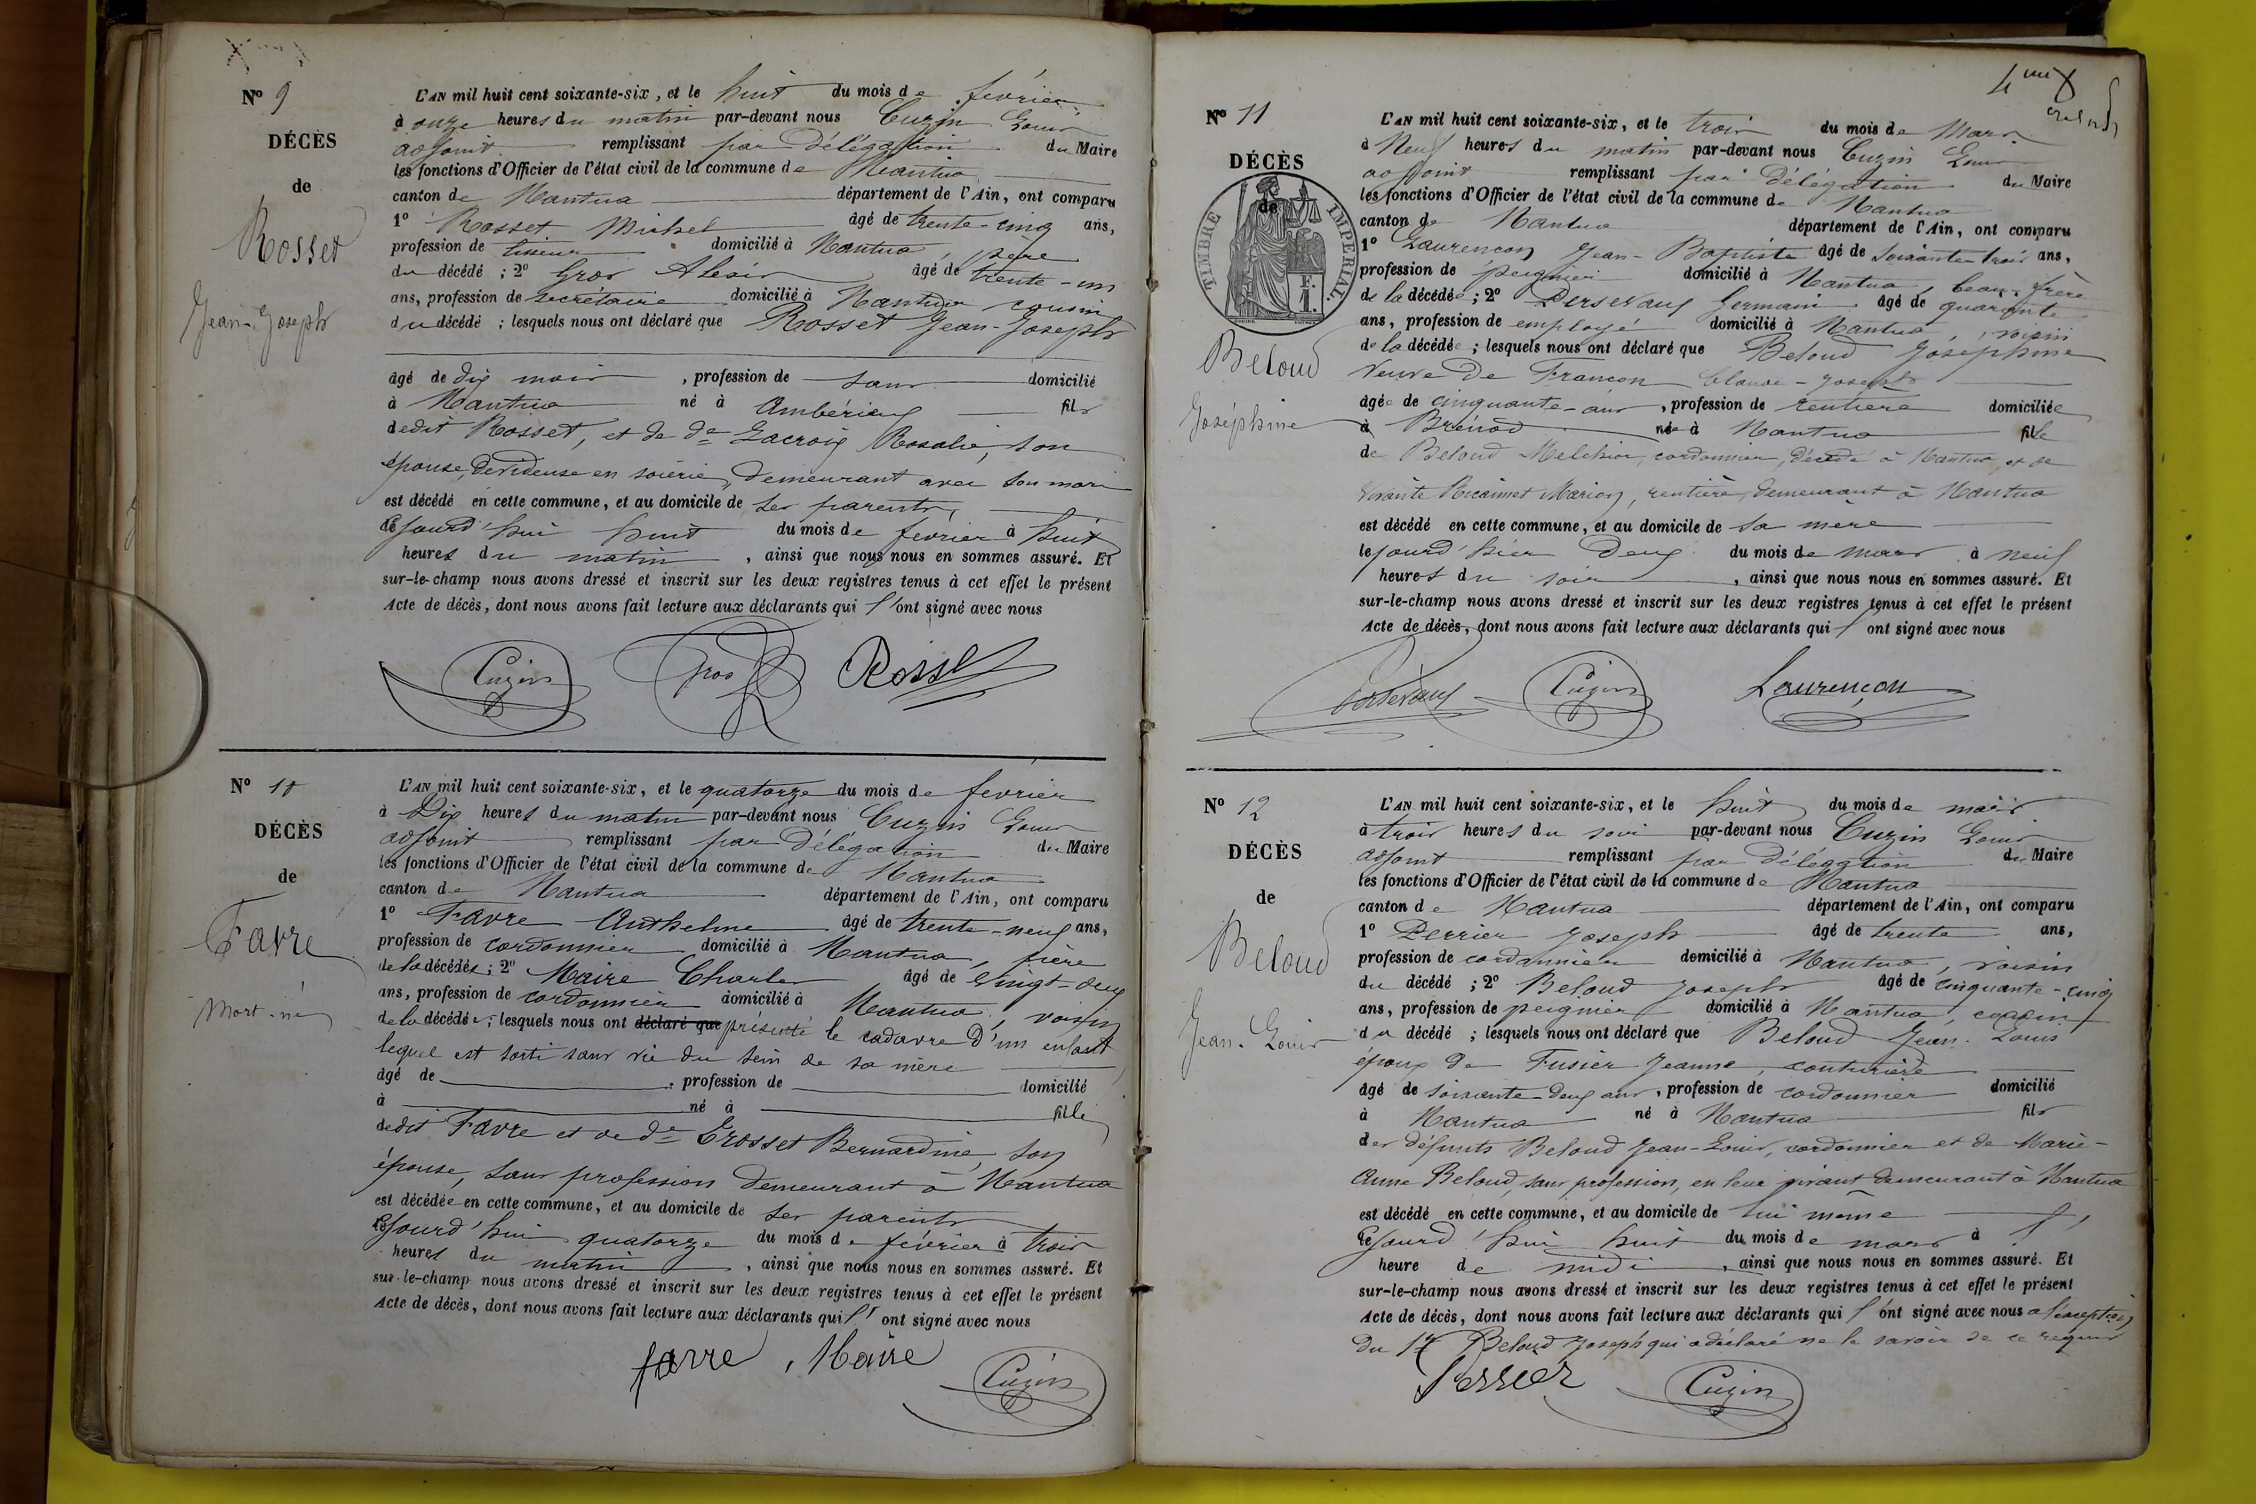 Nº 9
DÉCÈS
de
Rosset
Jean-Joseph
L'AN mil huit cent soixante-six, et le huit du mois de février
à onze heures du matin par-devant nous Cuzin Louis
adjoint remplissant par délégation du Maire
les fonctions d'Officier de l'état civil de la commune de Nantua
canton de Nantua département de l'Ain, ont comparu
1º Rosset Michel âgé de trente-cinq ans,
profession de domicilié à Nantua, père
du décédé ; 2º Gros Alexis âgé de trente-un
ans, profession de secrétaire domicilié à Nantua cousin
du décédé ; lesquels nous ont déclaré que Rosset Jean-Joseph
âgé de dix mois, profession de sans domicilié
à Nantua né à Ambérieux fils
dedit Rosset, et de de Lacroix Rosalie, son
épouse, devideuse en soierie, demeurant avec son mari
est décédé en cette commune, et au domicile de ses parents,
cejourd'hui huit du mois de février à huit
heures du matin, ainsi que nous nous en sommes assuré. Et
sur-le-champ nous avons dressé et inscrit sur les deux registres tenus à cet effet le présent
Acte de décès, dont nous avons fait lecture aux déclarants qui l'ont signé avec nous
Cuzin Gros Rosset
Nº 10
DÉCÈS
de
Favre
Mort-né
L'AN mil huit cent soixante-six, et le quatorze du mois de février
à Dix heures du matin par-devant nous Cuzin Louis
adjoint remplissant par délégation du Maire
les fonctions d'Officier de l'état civil de la commune de Nantua
canton de Nantua département de l'Ain, ont comparu
1º Favre Anthelme âgé de trente-neuf ans,
profession de cordonnier domicilié à Nantua, père
de la décédée ; 2º Maire Charles âgé de vingt-deux
ans, profession de cordonnier domicilié à Nantua, voisin
de la décédée ; lesquels nous ont déclaré que présenté le cadavre d'un enfant
lequel est sorti sans vie du sein de sa mère
âgé de , profession de domicilié
à né à fille
dedit Favre et de de Grosset Bernardine, son
épouse, sans profession demeurant à Nantua
est décédée en cette commune, et au domicile de ses parents
cejourd'hui quatorze du mois de février à trois
heures du matin, ainsi que nous nous en sommes assuré. Et
sur-le-champ nous avons dressé et inscrit sur les deux registres tenus à cet effet le présent
Acte de décès, dont nous avons fait lecture aux déclarants qui l'ont signé avec nous
favre Maire Cuzin
Nº 11
DÉCÈS
de
TIMBRE IMPÉRIAL.
Beloud
Joséphine
L'AN mil huit cent soixante-six, et le trois du mois de Mars
à Neuf heures du matin par-devant nous Cuzin Louis
adjoint remplissant par délégation du Maire
les fonctions d'Officier de l'état civil de la commune de Nantua
canton de Nantua département de l'Ain, ont comparu
1º Laurençon Jean-Baptiste âgé de soixante-trois ans,
profession de peignier domicilié à Nantua, beau-frère
de la décédée ; 2º Persevaux Germain âgé de quarante
ans, profession de employé domicilié à Nantua, voisin
de la décédée ; lesquels nous ont déclaré que Beloud Joséphine
veuve de Francon Claude-Joseph
âgée de cinquante-ans, profession de rentière domiciliée
à Brénod née à Nantua fille
de Beloud Melchior, cordonnier, décédé à Nantua, et de
vivante Marion, rentière, demeurant à Nantua
est décédé en cette commune, et au domicile de sa mère
lejourd'hier Deux du mois de mars à neuf
heures du soir, ainsi que nous nous en sommes assuré. Et
sur-le-champ nous avons dressé et inscrit sur les deux registres tenus à cet effet le présent
Acte de décès, dont nous avons fait lecture aux déclarants qui l'ont signé avec nous
Persevaux Cuzin Laurençon
Nº 12
DÉCÈS
de
Beloud
Jean-Louis
L'AN mil huit cent soixante-six, et le huit du mois de mars
à trois heures du soir par-devant nous Cuzin Louis
adjoint remplissant par délégation du Maire
les fonctions d'Officier de l'état civil de la commune de Nantua
canton de Nantua département de l'Ain, ont comparu
1º Perrier Joseph âgé de trente ans,
profession de cordonnier domicilié à Nantua, voisin
du décédé ; 2º Beloud Joseph âgé de cinquante-cinq
ans, profession de peignier domicilié à Nantua, cousin
du décédé ; lesquels nous ont déclaré que Beloud Jean-Louis
époux de Fusier Jeanne, couturière
âgé de soixante-deux ans, profession de cordonnier domicilié
à Nantua né à Nantua fils
des défunts Beloud Jean-Louis, cordonnier et de Marie-
Anne Beloud, sans profession, en leur vivant demeurant à Nantua
est décédé en cette commune, et au domicile de lui même
cejourd'hui huit du mois de mars à
heure de midi, ainsi que nous nous en sommes assuré. Et
sur-le-champ nous avons dressé et inscrit sur les deux registres tenus à cet effet le présent
Acte de décès, dont nous avons fait lecture aux déclarants qui l'ont signé avec nous à l'exception
du Sr Beloud Joseph qui a déclaré ne le savoir de ce requis
Perrier Cuzin